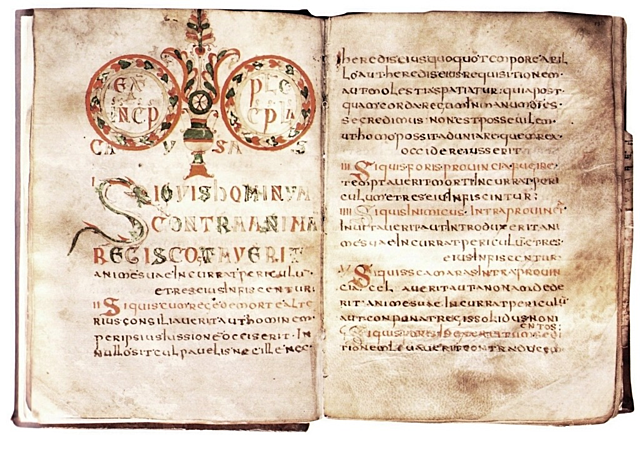 SIQUISHOMINUM
CONTRAANIMA
REGISCOTAVERIT
animesuaeincurratpericulu
etreseiusinfiscentur
II Siquiscumregedemortealte
riusconsiliaveritauthominem
peripsiusiussioneocciserit in
nullositculpavelisnecillenec
heredeseiusquoquotemporeabil
loautheredeseiusrequisitionem
autmolestiaspatiatur quiapost
quamcordareguminmanudies
secredimusnonestposseutem
uthomopossitaduniarequemrex
occidereiusserit
III Siquisforisprovinciafugire
temptaveritmortisincurratperi
culumetreseiusinfiscintur
IIII Siquisinimicusintraprovincia
invitaveritautintroduxeritani
mesuaeincurratpericulumetres
eiusinfiscentur
V Siquisscamarasintraprovin
ciacelaveritautannonamdede
ritanimesuaeincurratpericulu
autconponatregissolidusnon
centos
tionemlevaveritcontraducem